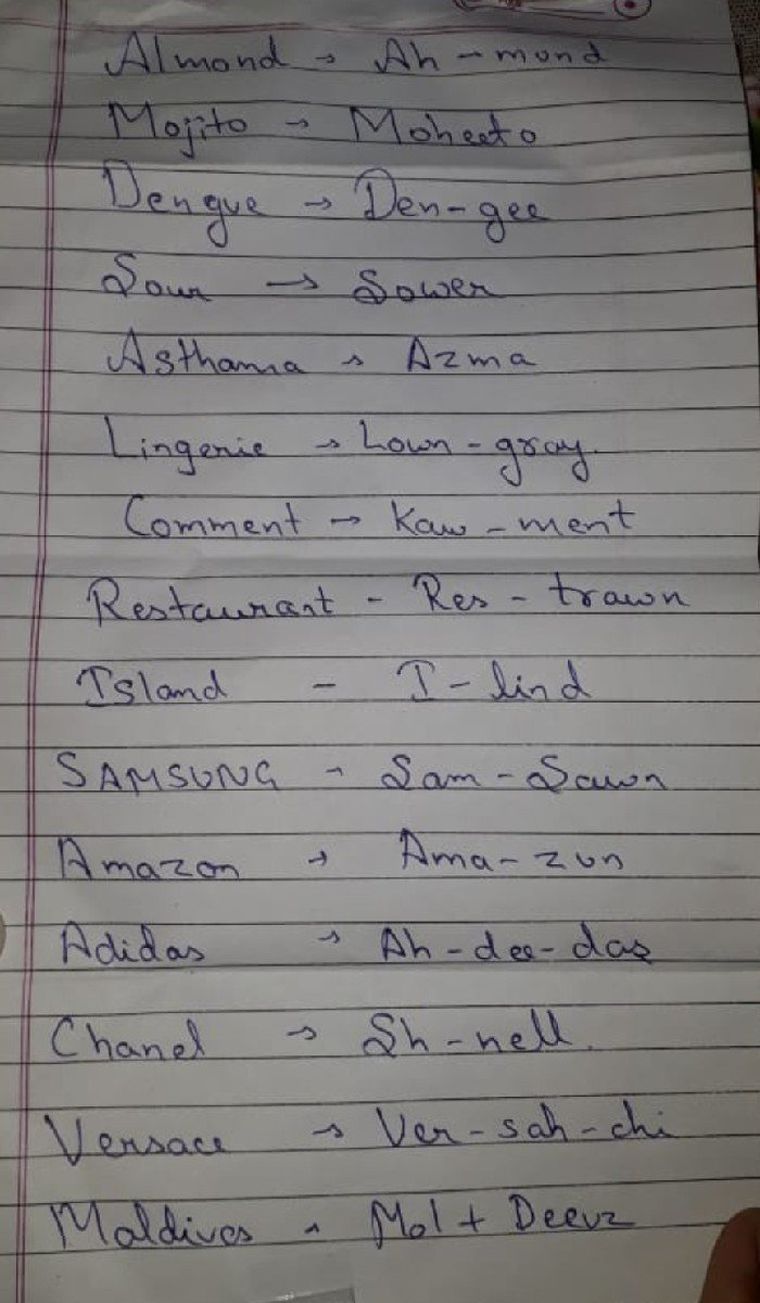 Almond → Ah - mund
Mojito → Moheeto
Dengue → Den-gee
Sour → Sower
Asthama → Azma
Lingerie → Lown-gray.
Comment → Kaw-ment
Restaurant - Res-trawn
Island - I-lind
SAMSUNG → Sam-Sawn
Amazon → Ama-zun
Adidas → Ah-dee-das
Chanel → Sh-nell.
Versace → Ver-sah-chi
Maldives → Mol + Deevz